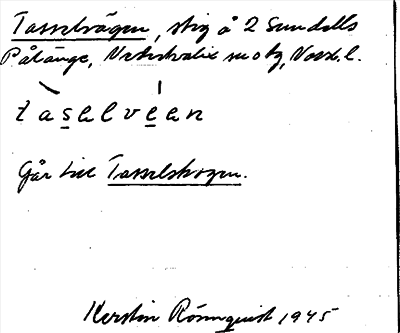 Tasselvägen, stig å 2 Sundells
Pålänge, Nederkalix sn o tg, Norrb. l.
tasəlveən
Går till Tasselskogen.
Kerstin Rönnquist 1945